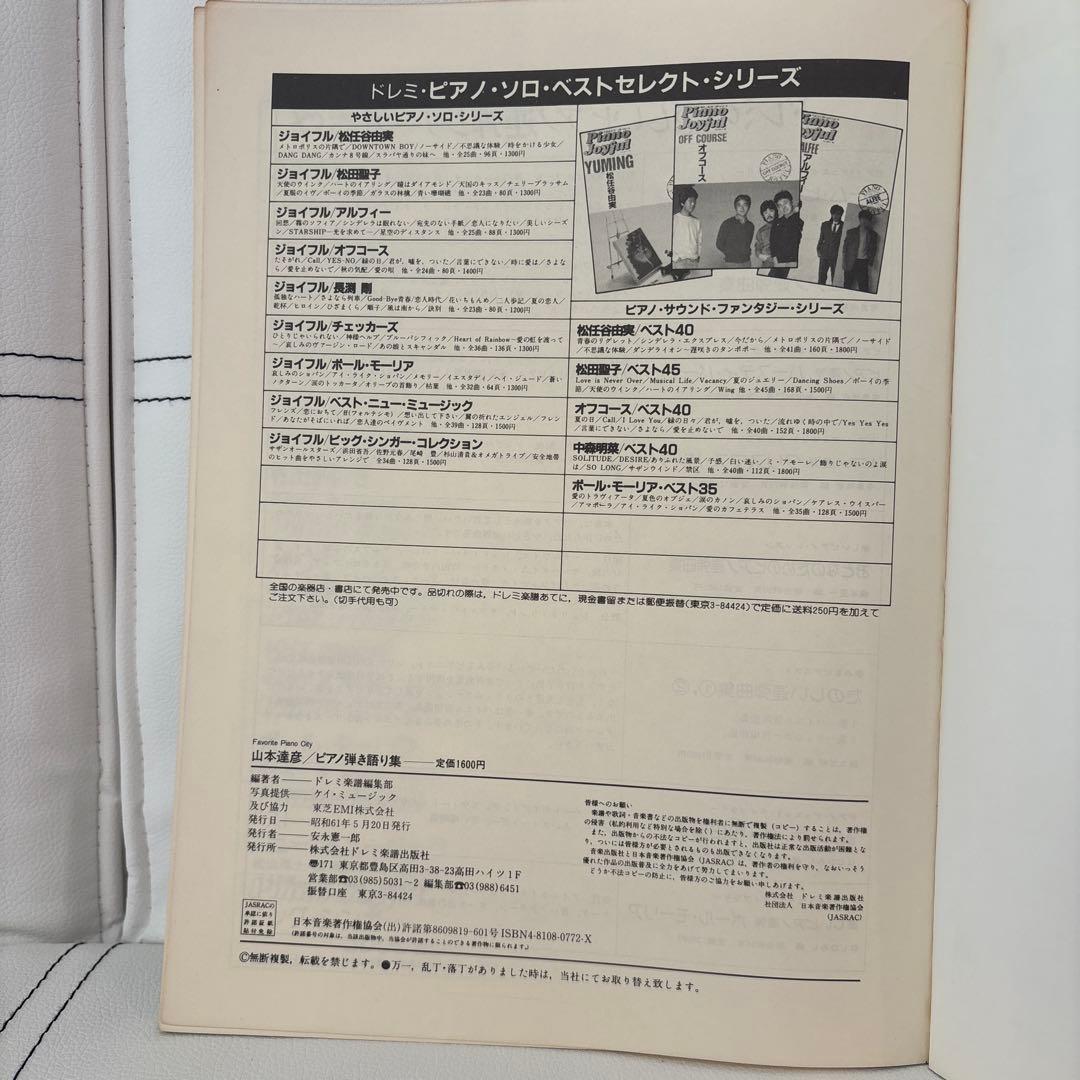 ドレミ・ピアノ・ソロ・ベストセレクト・シリーズ
やさしいピアノ・ソロ・シリーズ
ジョイフル/松任谷由実
メトロポリスの片隅で/DOWNTOWN BOY/ノーサイド/不思議な体験/時をかける少女/
DANG DANG/カンナ8号線/スラバヤ通りの妹へ 他・全25曲・96頁・1300円
ジョイフル/松田聖子
天使のウインク/ハートのイアリング/瞳はダイアモンド/天国のキッス/チェリーブラッサム
/夏服のイヴ/ボーイの季節/ガラスの林檎/青い珊瑚礁 他・全23曲・80頁・1300円
ジョイフル/アルフィー
回想/霧のソフィア/シンデレラは眠れない/宛先のない手紙/恋人になりたい/美しいシーズ
ン/STARSHIP―光を求めて―/星空のディスタンス 他・全25曲・88頁・1300円
ジョイフル/オフコース
たそがれ/Call/YES-NO/緑の日/君が、嘘を、ついた/言葉にできない/時に愛は/さよな
ら/愛を止めないで/秋の気配/愛の唄 他・全24曲・80頁・1400円
ジョイフル/長渕 剛
孤独なハート/さよなら列車/Good-Bye青春/恋人時代/花いちもんめ/二人歩記/夏の恋人/
乾杯/ヒロイン/ひざまくら/順子/風は南から/訣別 他・全23曲・80頁・1200円
ジョイフル/チェッカーズ
ひとりじゃいられない/神様ヘルプ/ブルー・パシフィック/Heart of Rainbow―愛の虹を渡って
―/哀しみのヴァージン・ロード/あの娘とスキャンダル 他・全36曲・136頁・1300円
ジョイフル/ポール・モーリア
哀しみのショパン/アイ・ライク・ショパン/メモリー/イエスタデイ/ヘイ・ジュード/蒼い
ノクターン/涙のトッカータ/オリーブの首飾り/枯葉 他・全32曲・64頁・1300円
ジョイフル/ベスト・ニュー・ミュージック
フレンズ/恋におちて/ff(フォルテシモ)/想い出して下さい/翼の折れたエンジェル/フレン
ド/あなたがそばにいれば/恋人達のペイヴメント 他・全39曲・128頁・1500円
ジョイフル/ビッグ・シンガー・コレクション
サザンオールスターズ/浜田省吾/佐野元春/尾崎 豊/杉山清貴&オメガトライブ/安全地帯
のヒット曲をやさしいアレンジで 全34曲・128頁・1500円
Piano Joyful
YUMING
松任谷由実
Piano Joyful
OFF COURSE
オフコース
ALFEE
アルフィー
ピアノ・サウンド・ファンタジー・シリーズ
松任谷由実/ベスト40
青春のリグレット/シンデレラ・エクスプレス/今だから/メトロポリスの片隅で/ノーサイド
/不思議な体験/ダンデライオン―遅咲きのタンポポ― 他・全41曲・160頁・1800円
松田聖子/ベスト45
Love is Never Over/Musical Life/Vacancy/夏のジュエリー/Dancing Shoes/ボーイの季
節/天使のウインク/ハートのイアリング/Wing 他・全45曲・168頁・1500円
オフコース/ベスト40
夏の日/Call/I Love You/緑の日々/君が、嘘を、ついた/流れゆく時の中で/Yes Yes Yes
/言葉にできない/さよなら/愛を止めないで 他・全40曲・152頁・1800円
中森明菜/ベスト40
SOLITUDE/DESIRE/ありふれた風景/予感/白い迷い/ミ・アモーレ/飾りじゃないのよ涙
は/SO LONG/サザンウインド/禁区 他・全40曲・112頁・1800円
ポール・モーリア・ベスト35
愛のトラヴィアータ/夏色のオブジェ/涙のカノン/哀しみのショパン/ケアレス・ウイスパー
/アマポーラ/アイ・ライク・ショパン/愛のカフェテラス 他・全35曲・128頁・1500円
全国の楽器店・書店にて発売中です。品切れの際は、ドレミ楽譜あてに、現金書留または郵便振替(東京3-84424)で定価に送料250円を加えて
ご注文下さい。(切手代用も可)
Favorite Piano City
山本達彦/ピアノ弾き語り集――定価1600円
編著者――ドレミ楽譜編集部
写真提供――ケイ・ミュージック
及び協力 東芝EMI株式会社
発行日――昭和61年5月20日発行
発行者――安永憲一郎
発行所――株式会社ドレミ楽譜出版社
〠171 東京都豊島区高田3-38-23高田ハイツ1F
営業部☎03(985)5031~2 編集部☎03(988)6451
振替口座 東京3-84424
皆様へのお願い
楽譜や歌詞・音楽書などの出版物を権利者に無断で複製(コピー)することは、著作権
の侵害(私的利用など特別な場合を除く)にあたり、著作権法により罰せられます。
また、出版物からの不法なコピーが行われますと、出版社は正常な出版活動が困難とな
り、ついには皆様方が必要とされるものも出版できなくなります。
音楽出版社と日本音楽著作権協会(JASRAC)は、著作者の権利を守り、なおいっそう
優れた作品の出版普及に全力をあげて努力してまいります。
どうか不法コピーの防止に、皆様方のご協力をお願い申しあげます。
株式会社 ドレミ楽譜出版社
社団法人 日本音楽著作権協会
(JASRAC)
JASRACの
承認に依り
許諾証紙
貼付免除
日本音楽著作権協会(出)許諾第8609819-601号 ISBN4-8108-0772-X
(許諾番号の対象は、当該出版物中、当協会が許諾することのできる著作物に限られます。)
Ⓒ無断複製、転載を禁じます。●万一、乱丁・落丁がありました時は、当社にてお取り替え致します。